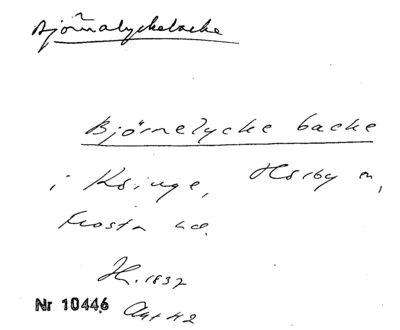 Björnalyckebacke
Björnelycke backe
i Ksinge, Hörby sn,
Frosta hd.
H. 1837
Nr 10446 Akt 42